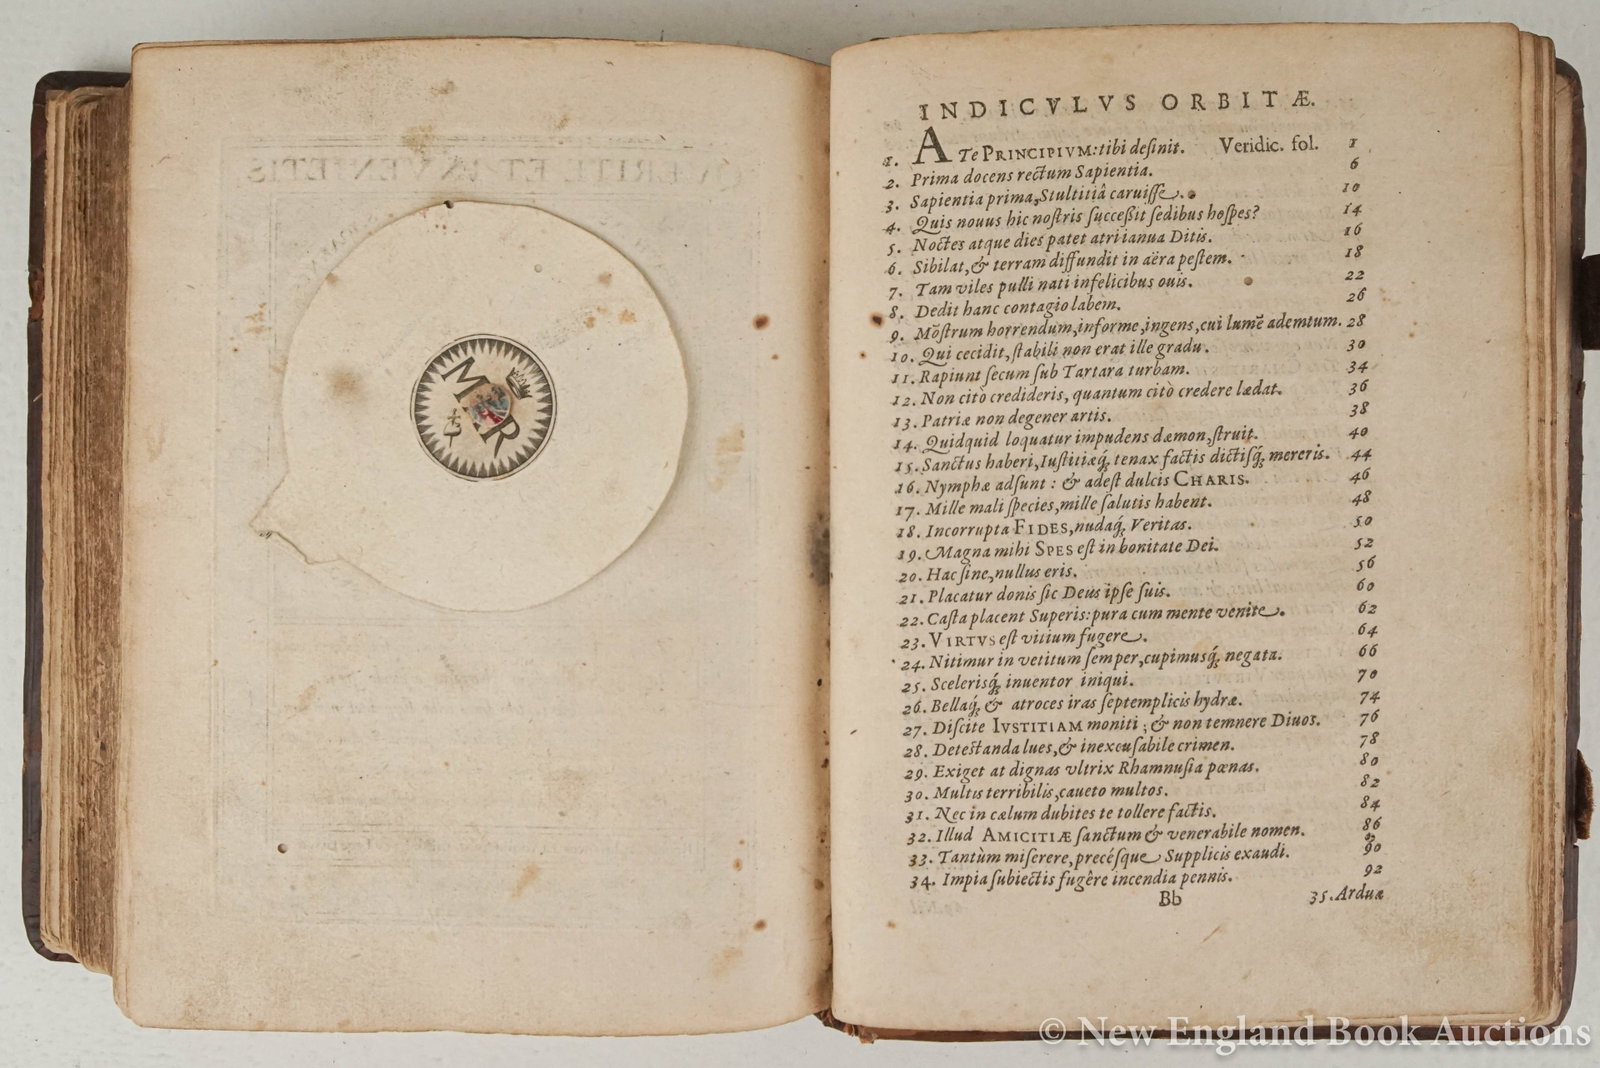 QVÆRITE ET INVENIETIS
M
R
INDICVLVS ORBITÆ.
1. A Te PRINCIPIVM: tibi desinit. Veridic. fol. 1
2. Prima docens rectum Sapientia. 6
3. Sapientia prima, Stultitiâ caruisse. 10
4. Quis nouus hic nostris successit sedibus hospes? 14
5. Noctes atque dies patet atri ianua Ditis. 16
6. Sibilat, & terram diffundit in aëra pestem. 18
7. Tam viles pulli nati infelicibus ouis. 22
8. Dedit hanc contagio labem. 26
9. Mōstrum horrendum, informe, ingens, cui lumē ademtum. 28
10. Qui cecidit, stabili non erat ille gradu. 30
11. Rapiunt secum sub Tartara turbam. 34
12. Non citò credideris, quantum citò credere lædat. 36
13. Patriæ non degener artis. 38
14. Quidquid loquatur impudens dæmon, struit. 40
15. Sanctus haberi, Iustitiæq́; tenax factis dictisq́; mereris. 44
16. Nymphæ adsunt: & adest dulcis CHARIS. 46
17. Mille mali species, mille salutis habent. 48
18. Incorrupta FIDES, nudaq́; Veritas. 50
19. Magna mihi SPES est in bonitate Dei. 52
20. Hac sine, nullus eris. 56
21. Placatur donis sic Deus ipse suis. 60
22. Casta placent Superis: pura cum mente venite. 62
23. VIRTVS est vitium fugere. 64
24. Nitimur in vetitum semper, cupimusq́; negata. 66
25. Scelerisq́; inuentor iniqui. 70
26. Bellaq́; & atroces iras septemplicis hydræ. 74
27. Discite IVSTITIAM moniti; & non temnere Diuos. 76
28. Detestanda lues, & inexcusabile crimen. 78
29. Exiget at dignas vltrix Rhamnusia pœnas. 80
30. Multis terribilis, caueto multos. 82
31. Nec in cælum dubites te tollere factis. 84
32. Illud AMICITIÆ sanctum & venerabile nomen. 86
33. Tantùm miserere, precésque Supplicis exaudi. 90
34. Impia subiectis fugêre incendia pennis. 92
Bb 35. Arduæ
© New England Book Auctions